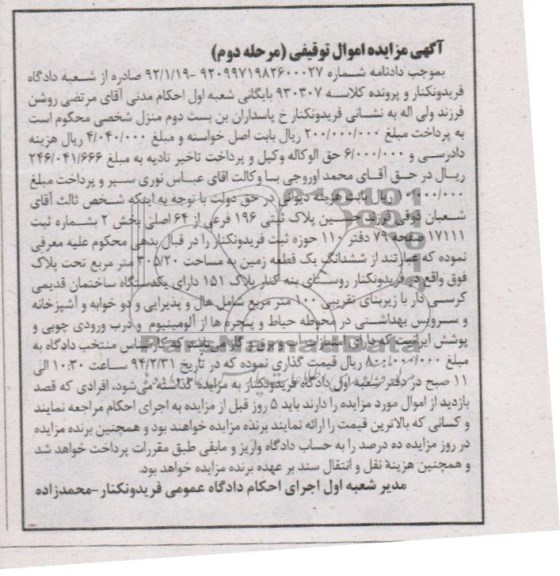 آگهی مزایده اموال توقیفی (مرحله دوم)
بموجب دادنامه شماره ۹۲۰۹۹۷۱۹۸۲۶۰۰۰۲۷ -۹۲/۱/۱۹ صادره از شعبه دادگاه
فریدونکنار و پرونده کلاسه ۹۳۰۳۰۷ بایگانی شعبه اول احکام مدنی آقای مرتضی روشن
فرزند ولی اله به نشانی فریدونکنار خ پاسداران بن بست دوم منزل شخصی محکوم است
به پرداخت مبلغ ۲۰۰/۰۰۰/۰۰۰ ریال بابت اصل خواسته و مبلغ ۴/۰۴۰/۰۰۰ ریال هزینه
دادرسی و ۶/۰۰۰/۰۰۰ حق الوکاله وکیل و پرداخت تاخیر تادیه به مبلغ ۲۴۶/۰۴۱/۶۶۶
ریال در حق آقای محمد اوروجی با وکالت اقای عباس نوری سیر و پرداخت مبلغ
ریال بابت هزینه دیوانی در حق دولت با توجه به اینکه شخص ثالث آقای
شعبان ذوقی فرزند حسین پلاک ثبتی ۱۹۶ فرعی از ۶۴ اصلی بخش ۲ بشماره ثبت
۱۷۱۱۱ صفحه ۷۹ دفتر ۱۱۰ حوزه ثبت فریدونکنار را در قبال بدهی محکوم علیه معرفی
نموده که عبارتند از ششدانگ یک قطعه زمین به مساحت ۳۰۵/۲۰ متر مربع تحت پلاک
فوق واقع در فریدونکنار روستای بنه کنار پلاک ۱۵۱ دارای یکدستگاه ساختمان قدیمی
کرسی دار با زیربنای تقریبی ۱۰۰ متر مربع شامل هال و پذیرایی و دو خوابه و آشپزخانه
و سرویس بهداشتی در محوطه حیاط و پنجره ها از آلومینیوم و درب ورودی چوبی و
پوشش ایرانیت که دارای امتیاز آب و برق و گاز می باشد که کارشناس منتخب دادگاه به
مبلغ ۸۰۰/۰۰۰/۰۰۰ ریال قیمت گذاری نموده که در تاریخ ۹۴/۲/۳۱ ساعت ۱۰:۳۰ الی
۱۱ صبح در دفتر شعبه اول دادگاه فریدونکنار به مزایده گذاشته می‌شود، افرادی که قصد
بازدید از اموال مورد مزایده را دارند باید ۵ روز قبل از مزایده به اجرای احکام مراجعه نمایند
و کسانی که بالاترین قیمت را ارائه نمایند برنده مزایده خواهند بود و همچنین برنده مزایده
در روز مزایده ده درصد را به حساب دادگاه واریز و مابقی طبق مقررات پرداخت خواهد شد
و همچنین هزینه نقل و انتقال سند بر عهده برنده مزایده خواهد بود.
مدیر شعبه اول اجرای احکام دادگاه عمومی فریدونکنار-محمدزاده